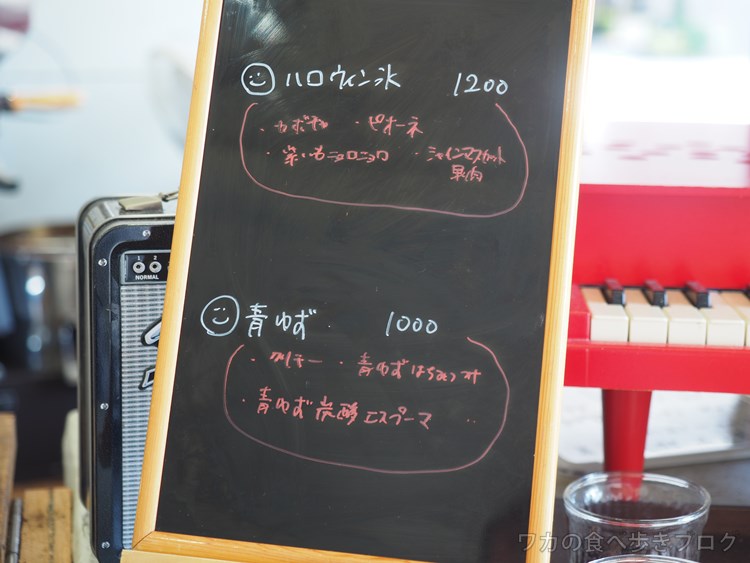 ハロウィン氷 1200
・カボチャ ・ピオーネ
・紫いもニョロニョロ ・シャインマスカット
果肉
青ゆず 1000
・クリーミー ・青ゆずはちみつ
・青ゆず炭酸エスプーマ
1 2
NORMAL
ワカの食べ歩きブログ